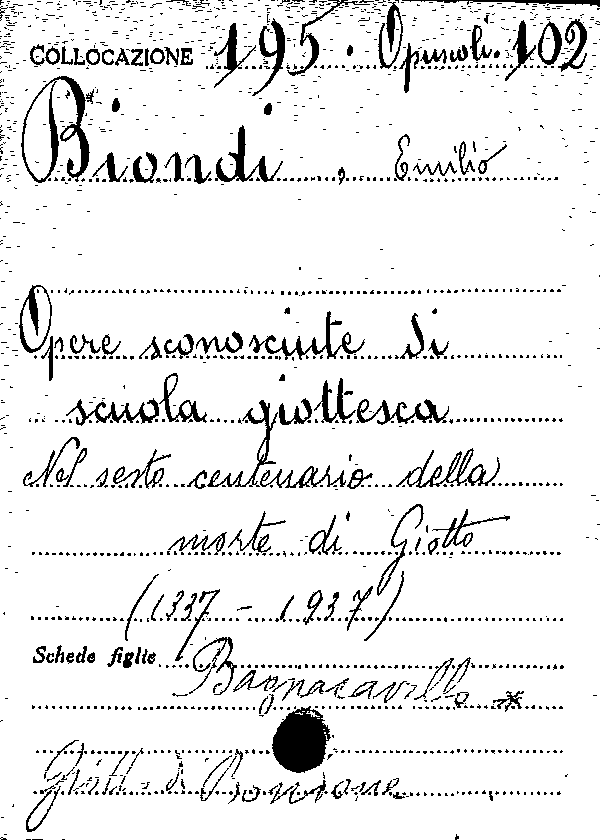 COLLOCAZIONE 195. Opuscoli. 102
Biondi, Emilio
Opere sconosciute di
scuola giottesca
Nel sesto centenario della
morte di Giotto
(1337 - 1937)
Schede figlie Bagnacavallo *
Giotto di Bondone